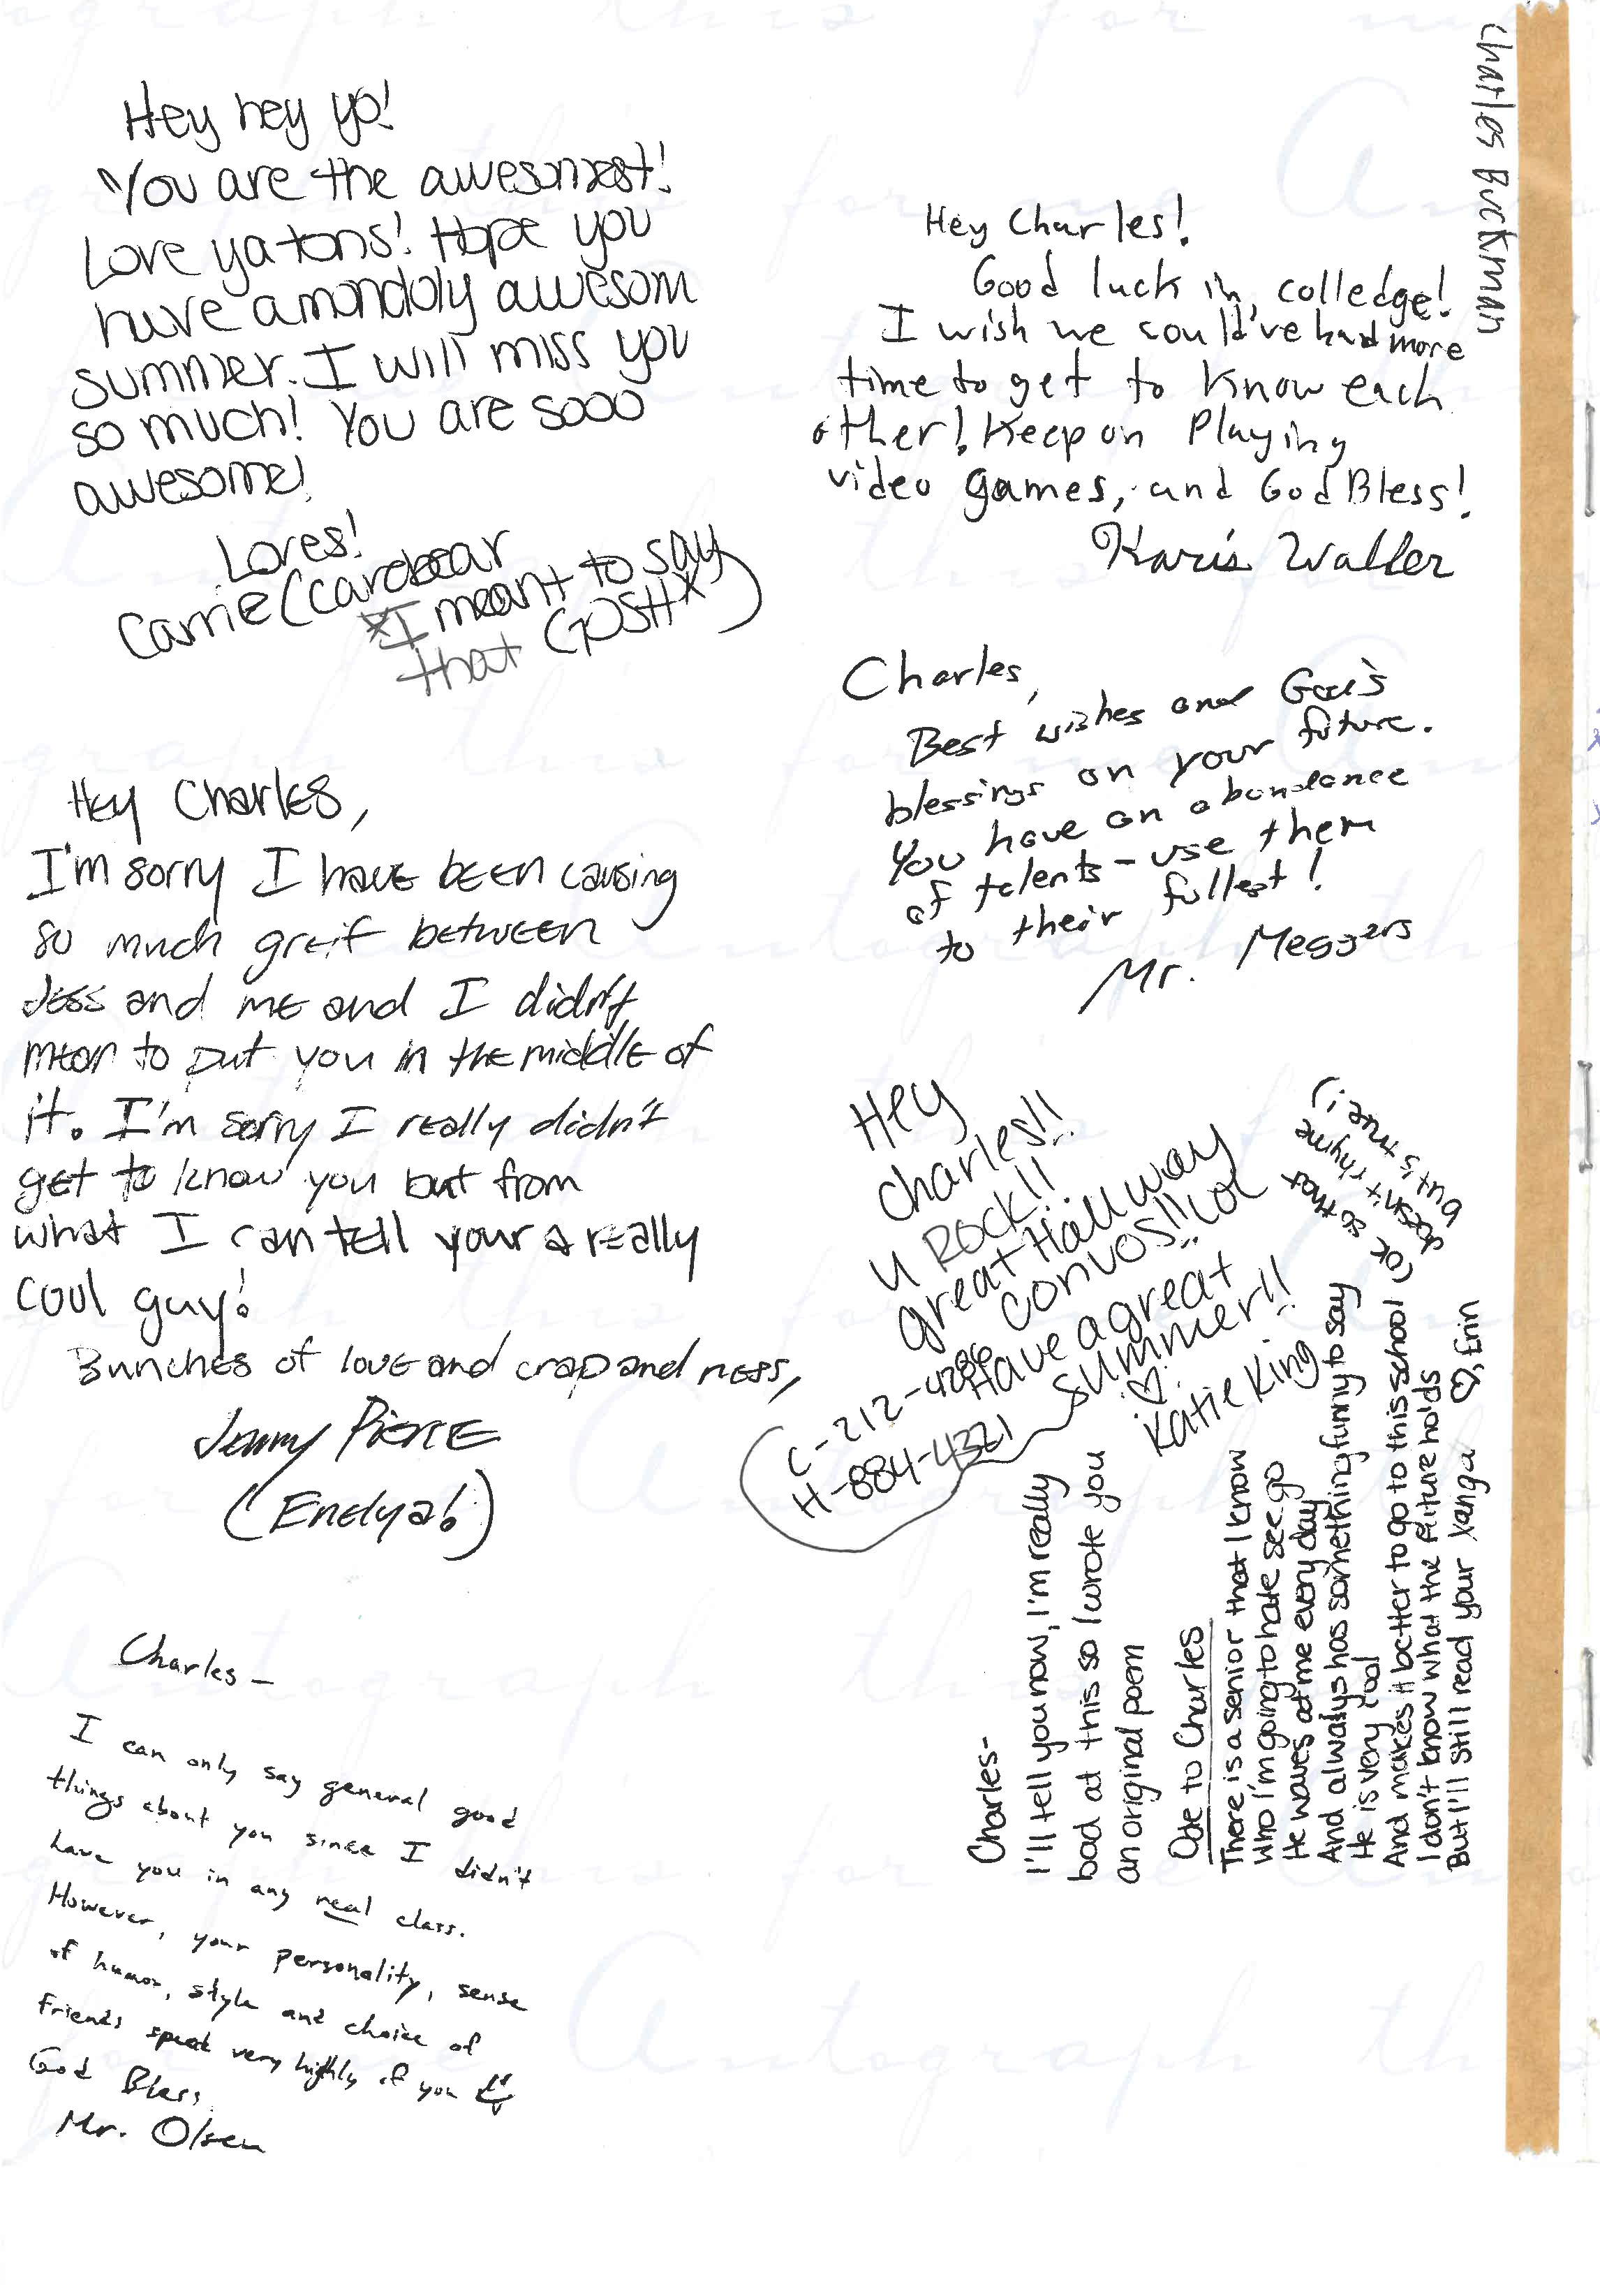 Charles Buckman
Hey hey yo!
You are the awesomest!
Love ya tons! Hope you
have a mondoly awesom
summer. I will miss you
so much! You are sooo
awesome!
Loves!
Carrie (carebear
*I meant to say
that GOSH*)
Hey Charles,
I'm sorry I have been causing
so much greif between
Jess and me and I didn't
mean to put you in the middle of
it. I'm sorry I really didn't
get to know you but from
what I can tell your a really
cool guy!
Bunches of love and crap and ness,
Jenny Pierce
(Endya!)
Charles –
I can only say general good
things about you since I didn't
have you in any real class.
However, your personality, sense
of humor, style and choice of
friends speak very highly of you
God Bless,
Mr. Olsen
Hey Charles!
Good luck in colledge!
I wish we could've had more
time to get to know each
other! Keep on Playing
video games, and God Bless!
Karis Waller
Charles,
Best wishes and God's
blessings on your future.
You have an abundance
of talents – use them
to their fullest!
Mr. Meggers
Hey
Charles!!
U Rock!!
great Hallway
convos!! Lol
Have a great
summer!!
♡
Katie King
C-212-4286
H-884-4321
Charles-
I'll tell you now, I'm really
bad at this so I wrote you
an original poem
Ode to Charles
There is a senior that I know
Who I'm going to hate see go
He waves at me every day
And always has something funny to say
He is very cool
And makes it better to go to this school (ok so that
doesn't rhyme
but it's true!)
I don't know what the future holds
But I'll still read your xanga
♡, Erin
Autograph this for me